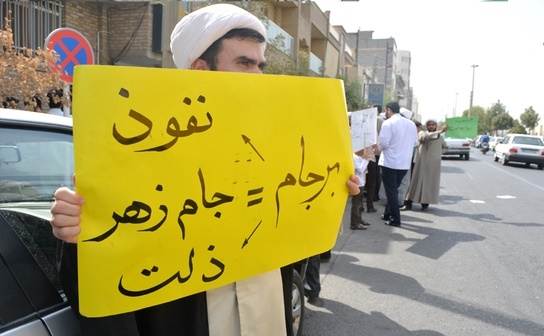 نفوذ
برجام = جام زهر
ذلت